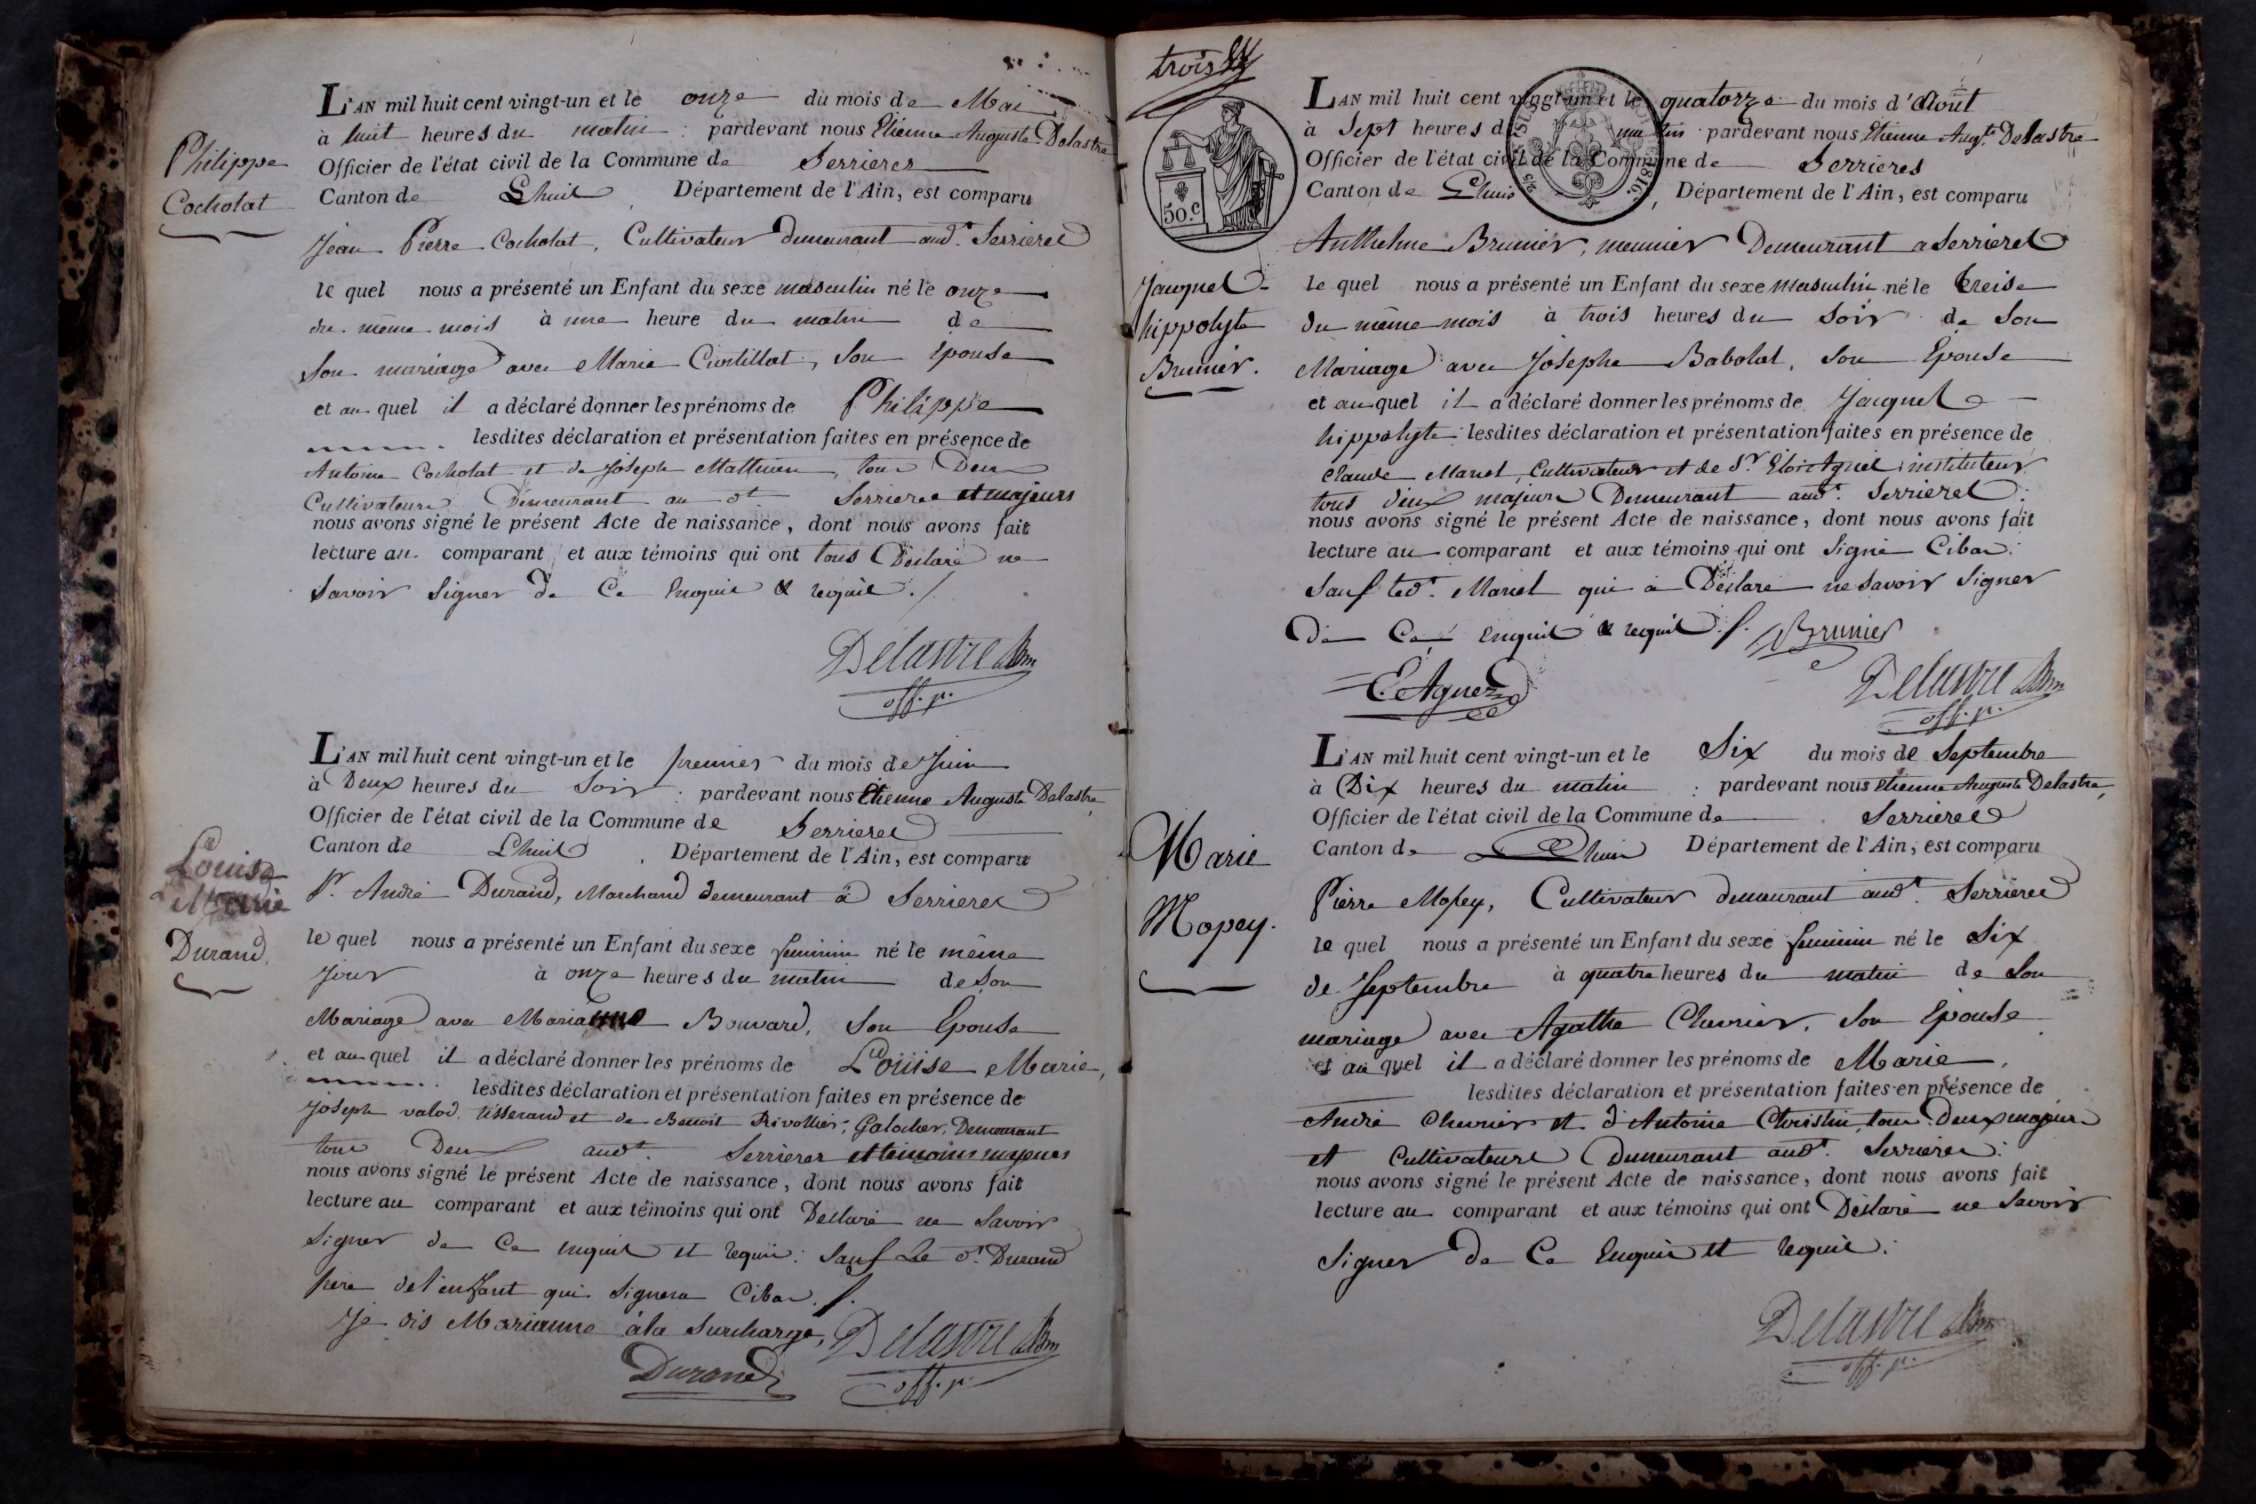 Philippe
Cocholat
L'AN mil huit cent vingt-un et le onze du mois de Mai
à huit heures du matin : pardevant nous Etienne Auguste Delastre
Officier de l'état civil de la Commune de Serrieres
Canton de Lhuis , Département de l'Ain, est comparu
Jean Pierre Cocholat, Cultivateur demeurant aud.t Serrieres
le quel nous a présenté un Enfant du sexe masculin né le onze
du même mois à une heure du matin de
son mariage avec Marie Curtillat, son épouse
et au quel il a déclaré donner les prénoms de Philippe
lesdites déclaration et présentation faites en présence de
Antoine Cocholat et de Joseph Mathieu, tous Deux
Cultivateurs Demeurant au dt Serrieres et majeurs
nous avons signé le présent Acte de naissance, dont nous avons fait
lecture au comparant et aux témoins qui ont tous Déclaré ne
savoir signer de Ce Enquis & requis ./
Delastre
off. p.
Louise
Marie
Durand.
L'AN mil huit cent vingt-un et le premier du mois de Juin
à Deux heures du Soir : pardevant nous Etienne Auguste Delastre,
Officier de l'état civil de la Commune de Serrieres
Canton de Lhuis , Département de l'Ain, est comparu
Sr. André Durand, Marchand demeurant à Serrieres
le quel nous a présenté un Enfant du sexe feminin né le même
jour à onze heures du matin de son
Mariage avec Marianne Bouvard, son Epouse
et au quel il a déclaré donner les prénoms de Louise Marie,
lesdites déclaration et présentation faites en présence de
Joseph valod tisserand et de Benoit Rivollier, Galocher, Demeurant
tous Deux aud.t Serrieres et témoins majeurs
nous avons signé le présent Acte de naissance, dont nous avons fait
lecture au comparant et aux témoins qui ont Déclaré ne Savoir
signer de Ce enquis et requis : sauf Le dt. Durand
père de l'enfant qui signera Cibas ./.
Je dis Marianne à la surcharge,
Delastre
Durand
off. p.
trois
50.c
1816.
Jacques
hippolyte
Brunier.
LAN mil huit cent vingt-un et le quatorze du mois d'Aout
à Sept heures du matin pardevant nous Etienne Aug.te Delastre
Officier de l'état civil de la Commune de Serrieres
Canton de Lhuis , Département de l'Ain, est comparu
Anthelme Brunier, meunier Demeurant a Serrieres
le quel nous a présenté un Enfant du sexe masculin né le treise
du même mois à trois heures du Soir de Son
Mariage avec Josephe Babolat, son Epouse
et au quel il a déclaré donner les prénoms de Jacques
hippolyte lesdites déclaration et présentation faites en présence de
Claude Maret, Cultivateur et de Sr. Eloi Agniel instituteur
tous deux majeurs Demeurant aud.t Serrieres :
nous avons signé le présent Acte de naissance, dont nous avons fait
lecture au comparant et aux témoins qui ont Signé Cibas :
Sauf led.t Maret qui a Déclaré ne savoir signer
De Ce enquis & requis ./.
Brunier
Delastre
off. p.
Marie
Mopey.
L'AN mil huit cent vingt-un et le Six du mois de Septembre
à Dix heures du matin : pardevant nous etienne Auguste Delastre,
Officier de l'état civil de la Commune de Serrieres
Canton de Lhuis Département de l'Ain, est comparu
Pierre Mopey, Cultivateur demeurant aud.t Serrieres
le quel nous a présenté un Enfant du sexe feminin né le Six
de Septembre à quatre heures du matin de son
mariage avec Agathe Chevrier, son Epouse
et au quel il a déclaré donner les prénoms de Marie,
lesdites déclaration et présentation faites en présence de
André Chevrier et d'Antoine Christin, tous Deux majeurs
et Cultivateurs Demeurant aud.t Serrieres :
nous avons signé le présent Acte de naissance, dont nous avons fait
lecture au comparant et aux témoins qui ont Déclaré ne Savoir
signer de Ce Enquis et requis :
Delastre
off. p.